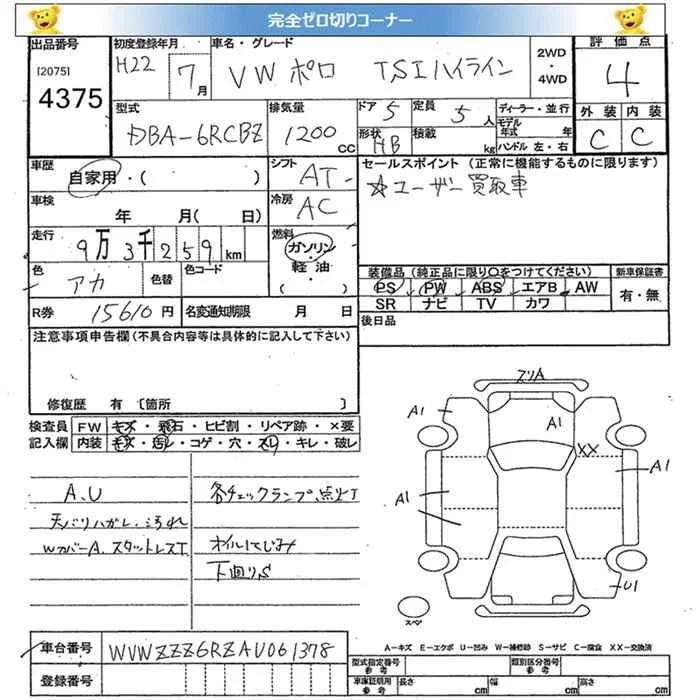 完全ゼロ切りコーナー
出品番号
[2075]
4375
初度登録年月
H22 7月
車名・グレード
VW ポロ TSIハイライン
2WD
・
4WD
評価点
4
型式
DBA-6RCBZ
排気量
1200 CC
ドア 5
定員 5人
形状 HB
積載 kg
ディーラー・並行
モデル年式 年
ハンドル 左・右
外装 内装
C C
車歴
自家用・( )
シフト AT
セールスポイント (正常に機能するものに限ります)
☆ユーザー買取車
車検
年 月( 日)
冷房 AC
走行
9万3千259km
燃料
ガソリン
・
軽油
・
( )
色 アカ
色替
色コード
装備品 (純正品に限り○をつけてください)
新車保証書
PS PW ABS エアB AW
SR ナビ TV カワ
有・無
R券 15610円
名変通知期限 月 日
後日品
注意事項申告欄 (不具合内容等は具体的に記入して下さい)
修復歴 有 〔箇所 〕
検査員記入欄
FW キズ・飛石・ヒビ割・リペア跡・×要
内装 キズ・汚レ・コゲ・穴・スレ・キレ・破レ
A.U
天バリハガレ.汚れ
WカバーA.スタットレスT
各チェックランプ点灯
オイルにじみ
下廻りS
スリA
A1
A1
XX
A1
A1
U1
スペ
A-キズ E-エクボ U-凹み W-補修跡 S-サビ C-腐食 XX-交換済
車台番号
WVWZZZ6RZAU061378
登録番号
型式指定番号 参考
類別区分番号 参考
車庫証明用 参考
長さ cm 幅 cm 高さ cm